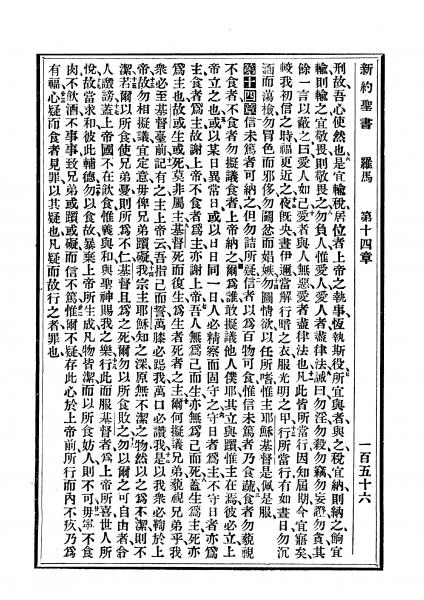 新約聖書 羅馬 第十四章 一百五十六
刑、故吾心使然也、是宜輸稅、居位者上帝之執事、恆執斯役、所宜與者與之、稅宜納則納之、餉宜
輸則輸之、宜敬畏則敬畏之、勿負人、惟愛人、愛人者盡律法、誡曰、勿淫、勿殺、勿竊、勿妄證、勿貪、其
餘一言以蔽之、曰、愛人如己、愛者與人無惡、愛者盡律法也、凡此皆所當行、因知屆期、今宜寤矣、
較我初信之時、福更近之、夜旣央、晝伊邇、當解行暗之衣、服光明之甲、行所當行、有如晝日、勿沉
湎而蕩檢、勿冒色而邪侈、勿鬪忿而娼嫉、勿圖情欲以任所嗜、惟主耶穌基督是佩是服、
第十四章 信未篤者可納之、但勿詰所疑、信者以爲百物可食、惟信未篤者、乃食蔬、食者勿藐視
不食者、不食者勿擬議食者、上帝納之、爾爲誰、敢擬議他人僕耶、其立與躓、惟主在焉、彼必立、上
帝立之也、或以某日異常日、或以日日同一日、人必精察而固守之、守日者爲主、不守日者亦爲
主、食者爲主、故謝上帝、不食者爲主、亦謝上帝、吾人無爲己而生、亦無爲己而死、蓋生爲主、死亦
爲主也、故或生或死、莫非屬主、基督死而復生、爲生者死者之主、爾何擬議兄弟、藐視兄弟乎、我
衆必至基督臺前、記上主上帝云、吾指己而誓、萬膝必跽我、萬口必讚我、是以我衆必鞠於上
帝、故勿相擬議、宜定意毋俾兄弟躓礙、我宗主耶穌、知之深、原無不潔之物、然以之爲不潔、則不
潔、若爾以所食使兄弟憂、則所爲不仁、基督且爲之死、爾勿以所食敗之、勿以爾之可自由者、令
人謗讟、蓋上帝國不在飲食、惟義與和、與聖神賜我之樂、行此而服基督者、爲上帝所喜、世人所
悅、故當求和、彼此輔德、勿以食故、暴棄上帝所生成、凡物皆潔、而以所食妨人則不可、毋寧不食
肉、不飲酒、不事事、致兄弟或躓或礙、而信不篤、惟爾不疑、存此心於上帝前、所行而內不疚、乃爲
有福、心疑而食者見罪、以其疑也、凡疑而故行之者罪也、